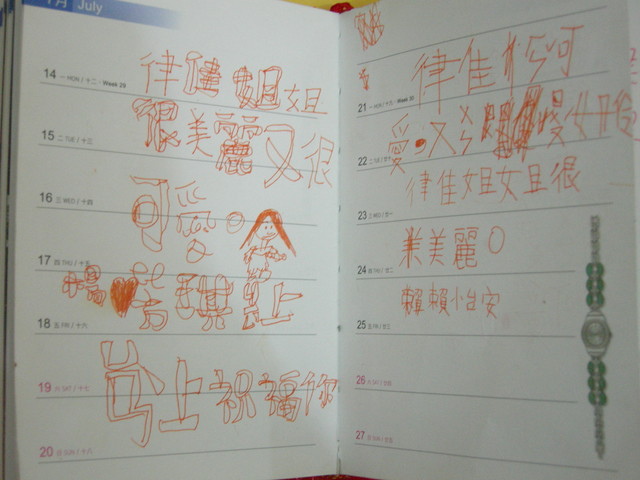 七月 July
14 一 MON / 十二 Week 29
律健姐姐
15 二 TUE / 十三
很美麗又很
16 三 WED / 十四
可愛。
17 四 THU / 十五
楊 琪上
18 五 FRI / 十六
馬上祝福你
19 六 SAT / 十七
20 日 SUN / 十八
律佳 可
21 一 MON / 十九 Week 30
愛,又
22 二 TUE / 二十
律隹姐姐很
23 三 WED / 廿一
美麗。
24 四 THU / 廿二
賴賴怡安
25 五 FRI / 廿三
26 六 SAT / 廿四
27 日 SUN / 廿五